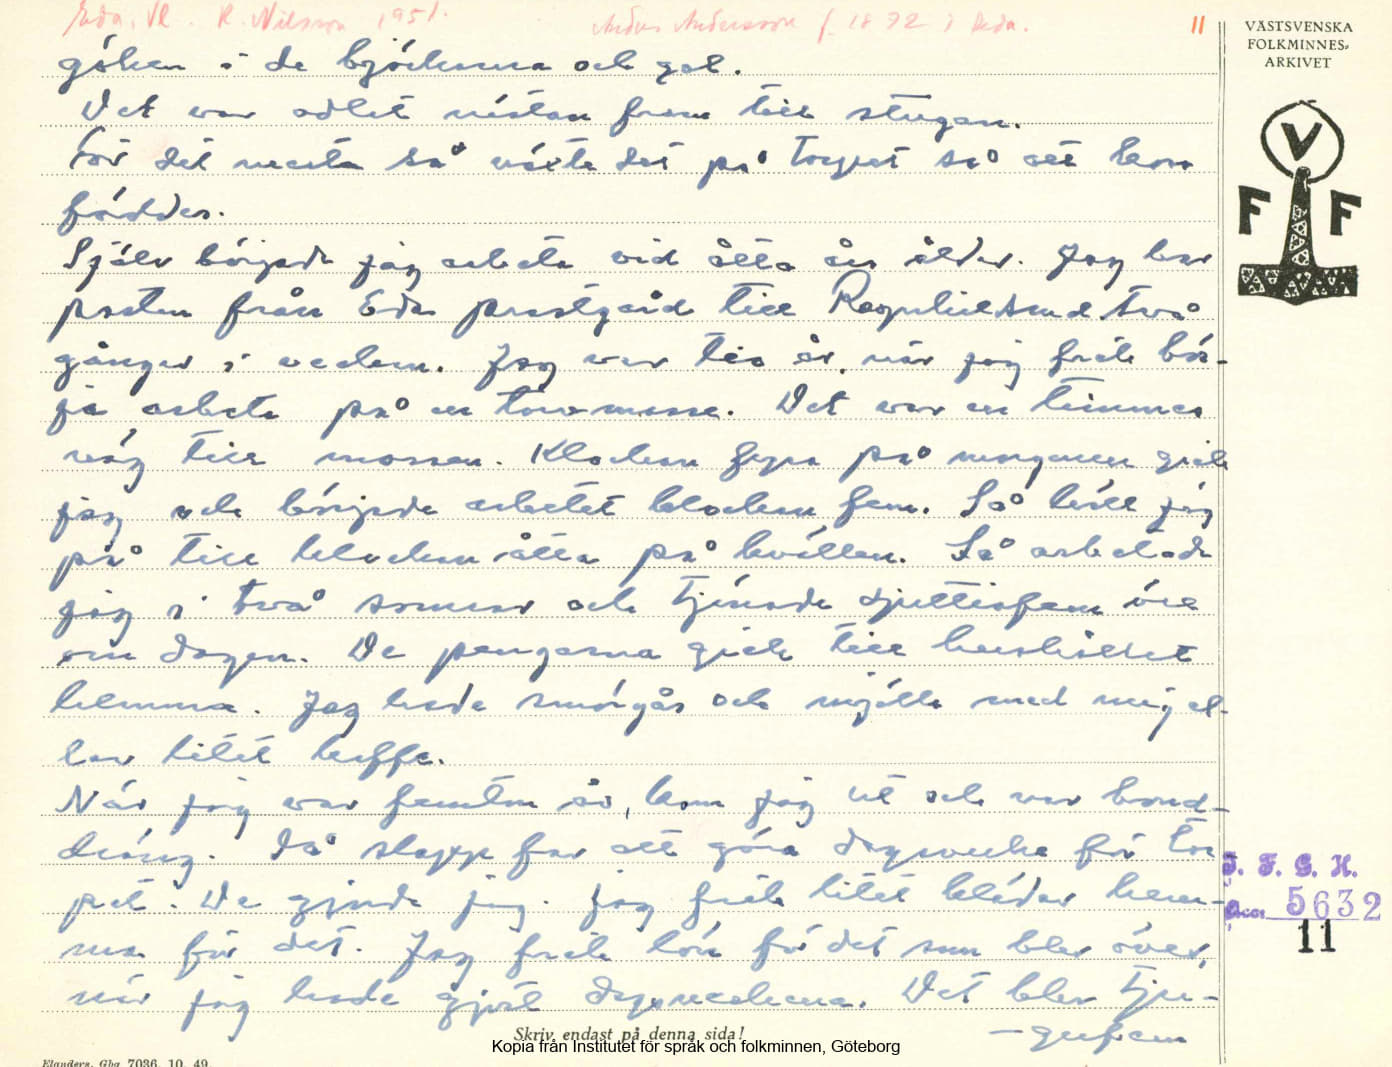 Eda, Vl. R. Nilsson 1951. Anders Andersson f. 1872 i Eda. 11
göken i de björkarna och gol.
Det var odlet nästan fram till stugan.
För det mesta så växte det på torpet så att kon
föddes.
Själv började jag arbeta vid åtta års ålder. Jag bar
posten från Eda prostgård till Rognhildsrud två
gånger i veckan. Jag var tio år, när jag fick bör-
ja arbeta på en torvmosse. Det var en timmes
väg till mossen. Klockan fyra på morgonen gick
jag och började arbetet klockan fem. Så höll jag
på till klockan åtta på kvällen. Så arbetade
jag i två somrar och tjänade sjuttiofem öre
om dagen. De pengarna gick till hushållet
hemma. Jag hade smörgås och mjölk med mig el-
ler litet kaffe.
När jag var femton år, kom jag ut och var bond-
dräng. Då slapp far att göra dagsverke för tor
pet. De gjorde jag. Jag fick litet kläder hem-
ma för det. Jag fick lön för det som blev över,
när jag hade gjort dagsverkena. Det blev tju-
-gufem
VÄSTSVENSKA
FOLKMINNES-
ARKIVET
V
F F
I. F. G. H.
Acc. 5632
11
Skriv endast på denna sida!
Kopia från Institutet för språk och folkminnen, Göteborg
Elanders, Gbg 7036. 10. 49.